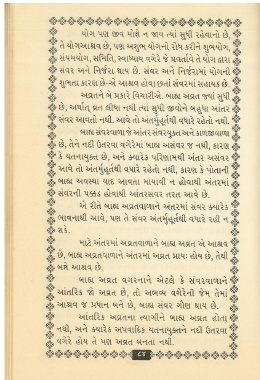 યોગ પણ જીવ મોક્ષે ન જાય ત્યાં સુધી રહેવાનો છે,
તે યોગઆશ્રવ છે, પણ અશુભ યોગનો રોધ કરીને શુભયોગ,
સંયમયોગ, સમિતિ, સ્વાધ્યાય વગેરે જે પ્રવર્તાવે તે યોગ દ્વારા
સંવર અને નિર્જરા થાય છે. સંવર અને નિર્જરામાં યોગની
શુભતા કારણ છે–એ આશ્રવ હોવા છતાં સંવરમાં સહાયક છે.
અવ્રતને બે પ્રકારે વિચારીએ. બાહ્ય અવ્રત જ્યાં સુધી
છે, અર્થાત્ વ્રત લીધા નથી ત્યાં સુધી જીવોને બહુધા આંતર
સંવર આવતો નથી. આવે તો અંતર્મુહૂર્તથી વધારે રહેતો નથી.
બાહ્ય સંવરવાળા જે આંતર સંવરયુક્ત અને કાળજીવાળા
છે, તેને નદી ઉતરવા વગેરેમાં બાહ્ય અસંવર જ નથી, કારણ
કે યતનાયુક્ત છે, અને ક્યારેક પરિણામથી અંતર અસંવર
આવે તો અંતર્મુહૂર્તથી વધારે રહેતો નથી, કારણ કે પોતાની
બાહ્ય અવસ્થા યાદ આવતા માયાવી ન હોવાથી અંતરમાં
સંવરની પક્કડ હોવાથી આંતરસંવર તરત આવે છે.
એ રીતે બાહ્ય અવ્રતવાળાને અંતરમાં સંવર ક્યારેક
ભાવનાથી આવે, પણ તે સંવર અંતર્મુહૂર્તથી વધારે રહી ન
શકે.
માટે અંતરમાં અવ્રતવાળાને બાહ્ય અવ્રત એ આશ્રવ
છે, બાહ્ય અવ્રતવાળાને અંતરમાં અવ્રત પ્રાયઃ હોય છે, તેથી
બન્ને આશ્રવ છે.
બાહ્ય અવ્રત વગરનાને એટલે કે સંવરવાળાને
આંતરિક જો અવ્રત છે, તો અભવ્ય વગેરેની જેમ તેમાં
આશ્રવ જ પ્રધાન બને છે, બાહ્ય સંવર ગૌણ થાય છે.
આંતરિક અવ્રતના ત્યાગીને બાહ્ય અવ્રત હોતા
નથી, અને ક્યારેક અપવાદિક યતનાયુક્તને નદી ઉતરવા
વગેરે હોય તે પણ અવ્રત બનતા નથી.
૮૪